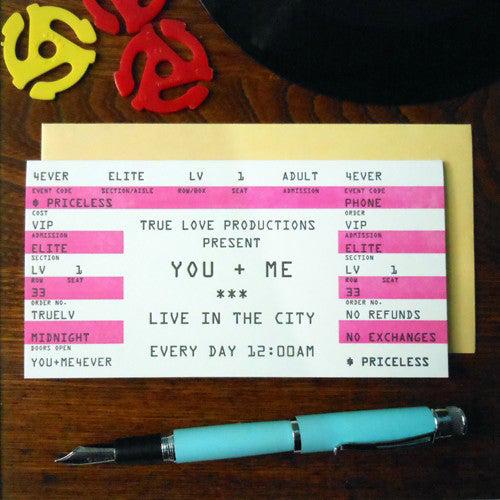 4EVER ELITE LV 1 ADULT 4EVER
EVENT CODE SECTION/AISLE ROW/BOX SEAT ADMISSION EVENT CODE
* PRICELESS
PHONE
COST
ORDER
VIP
VIP
ADMISSION
ADMISSION
ELITE
ELITE
SECTION
SECTION
LV 1
LV 1
ROW SEAT
ROW SEAT
33
33
ORDER NO.
ORDER NO.
TRUELV
NO REFUNDS
MIDNIGHT
NO EXCHANGES
DOORS OPEN
YOU+ME4EVER
* PRICELESS
TRUE LOVE PRODUCTIONS
PRESENT
YOU + ME
***
LIVE IN THE CITY
EVERY DAY 12:00AM